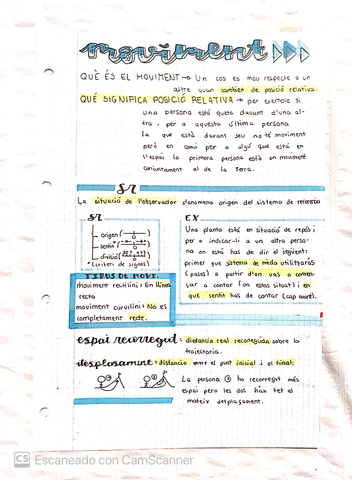 moviment
QUÈ ÉS EL MOVIMENT → Un cos es mou respecte a un
altre quan canvien de posició relativa.
QUÈ SIGNIFICA POSICIÓ RELATIVA → per exemple si
una persona està queta davant d'una al-
tra, per a aquesta última persona
la que està davant seu no té moviment
però en canvi per a algú que està en
l'espai la primera persona està en moviment
conjuntament al de la Terra.
SR
La situació de l'observador s'anomena origen del sistema de referència
SR
origen
sentit
divisió
(criteri de signes)
EX
Una planta està en situació de repòs i
per a indicar-li a un altra perso-
na on està has de dir el següent:
primer que sistema de mida utilitzaràs
(passos) a partir d'on vas a comen-
çar a contar (on estàs situat) i en
que sentit has de contar (cap avant).
TIPUS DE MOVI.
moviment rectilini: En línea
recta
moviment curvilini: No es
completament recte.
espai recorregut: distancia real recorreguda sobre la
trajectoria.
desplaçament: distancia entre el punt inicial i el final
La persona ① ha recorregut més
espai pero les dos han fet el
mateix desplaçament.
CS Escaneado con CamScanner